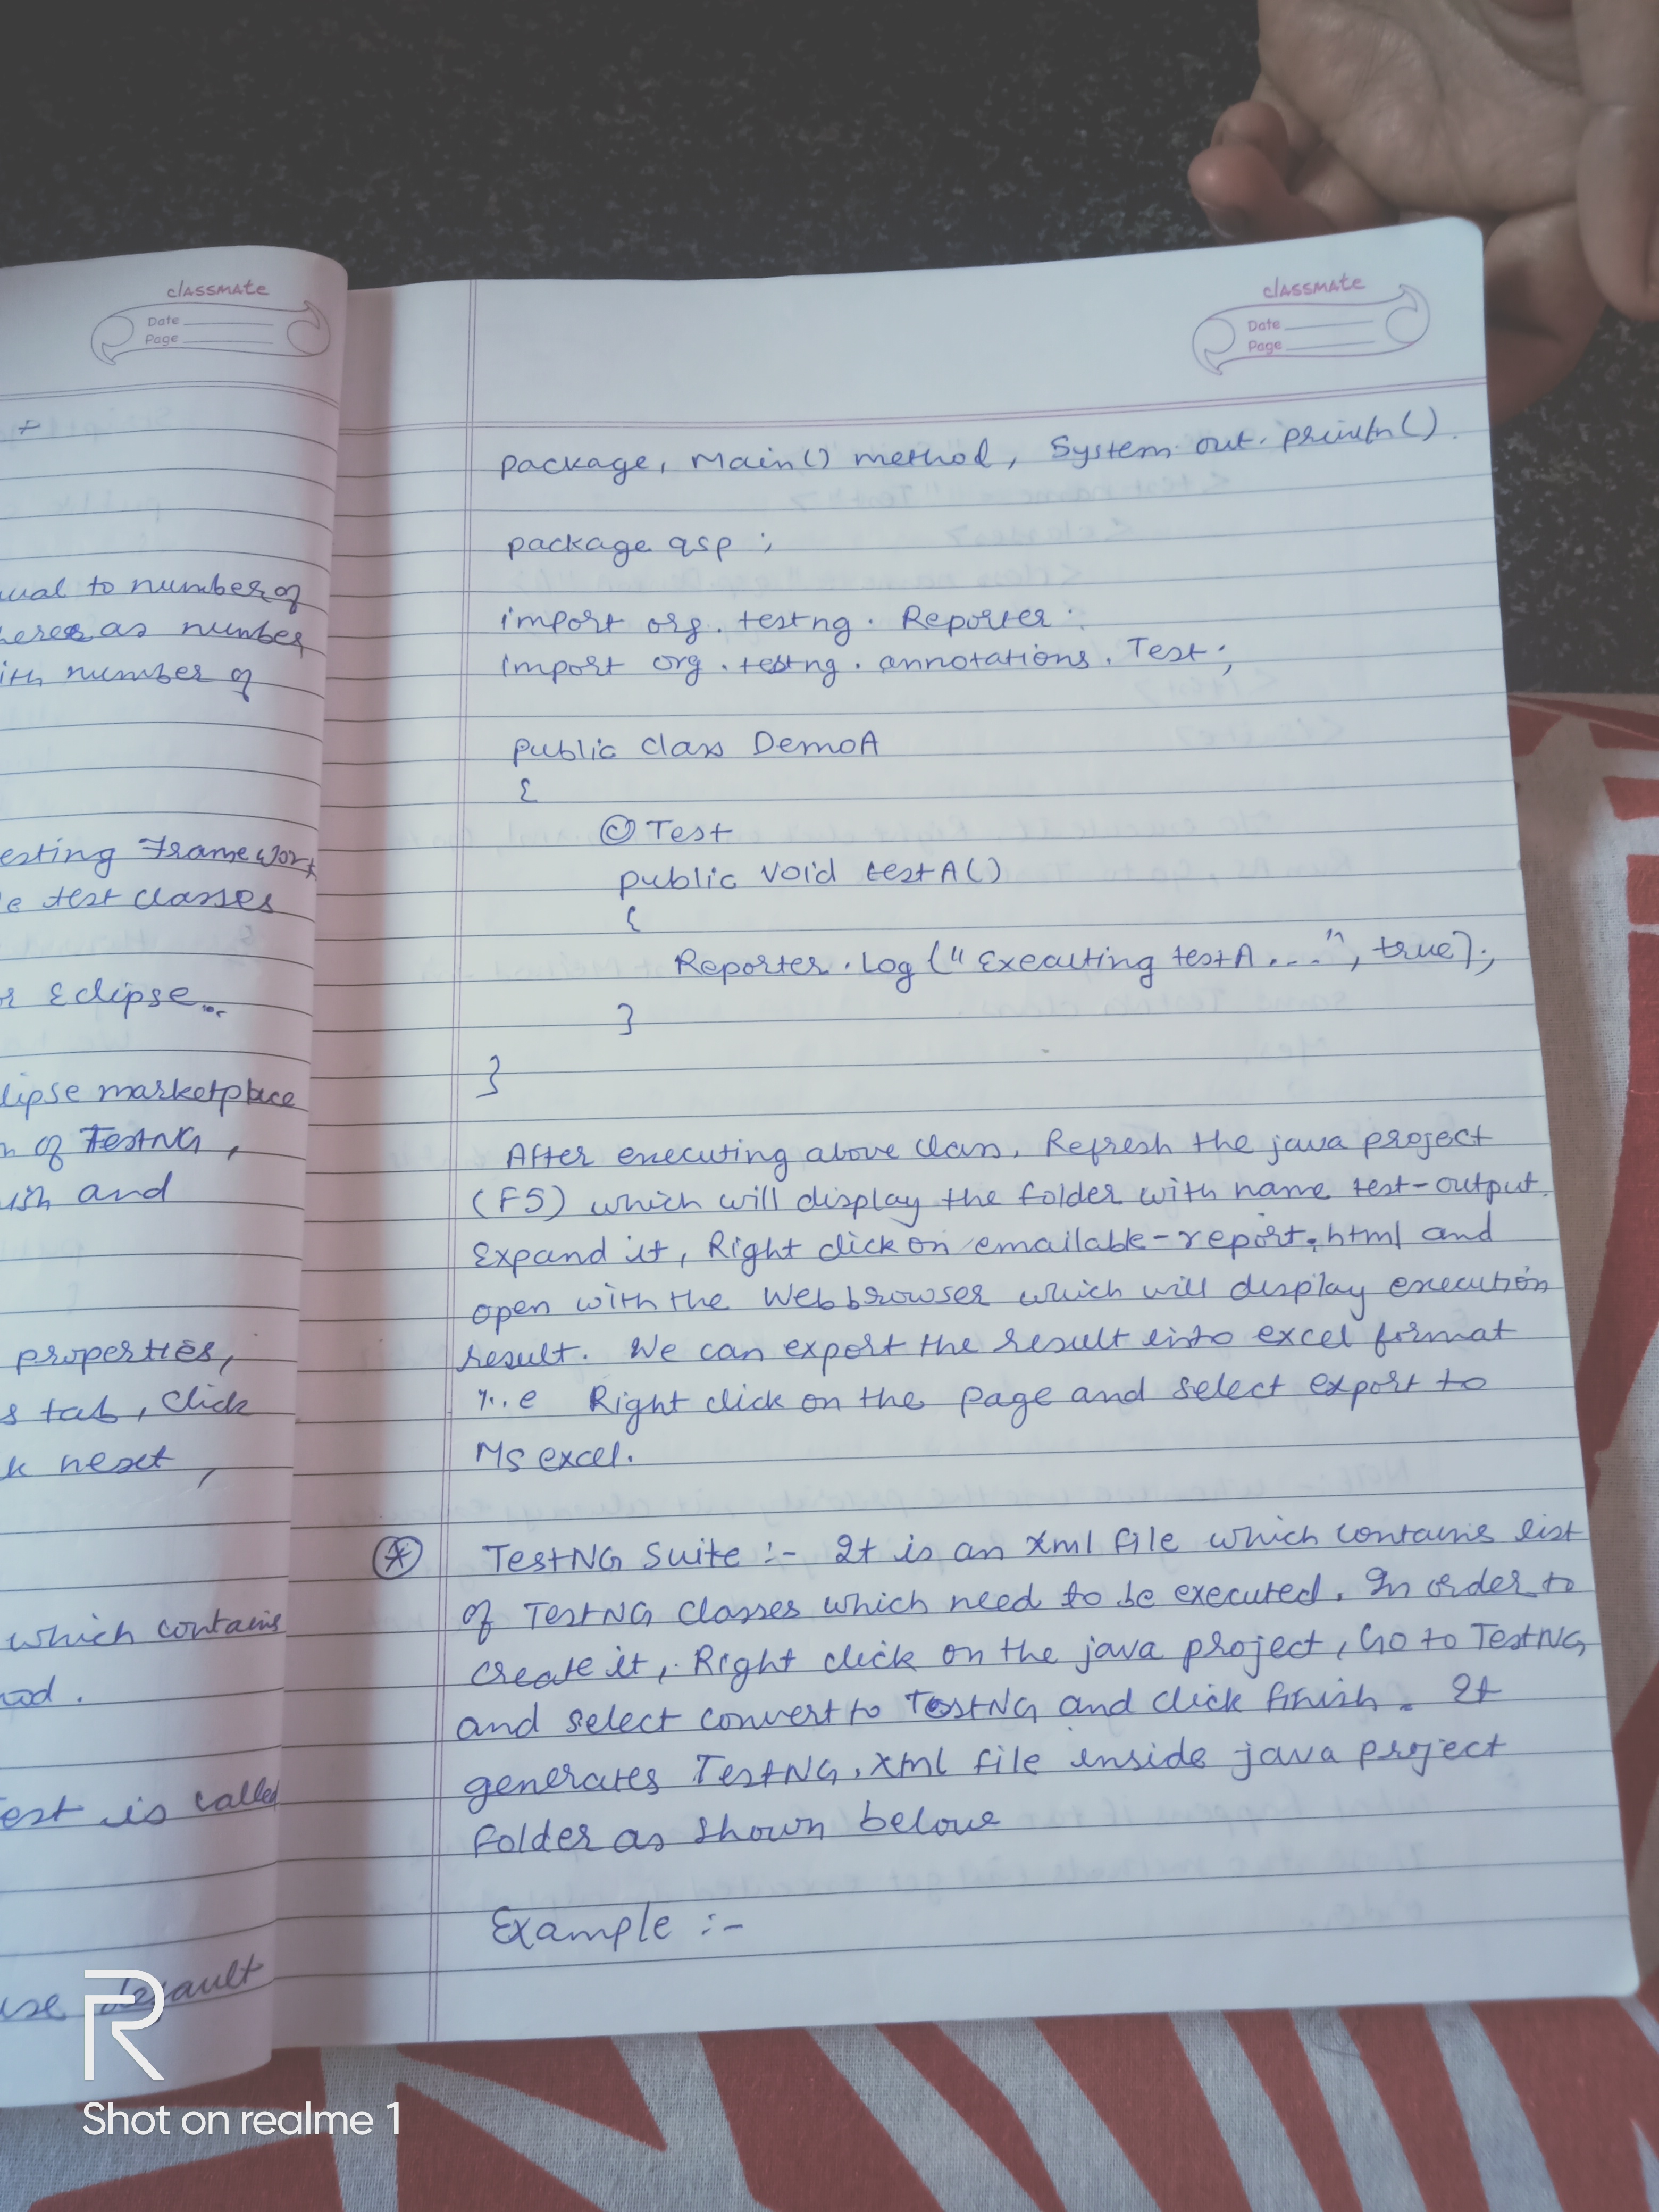 classmate
Date
Page
ual to number of
as number
ith number of
esting Framework
e test classes
r Eclipse..
lipse marketplace
n of TestNG,
ish and
properties,
s tab, click
k next,
which contains
od.
est is called
use default
classmate
Date
Page
package, Main() method, System.out.println().
package qsp ;
import org.testng.Reporter.
import org.testng.annotations.Test;
public class DemoA
{
@Test
public void testA()
{
Reporter.Log("Executing testA...", true);
}
}
After executing above class, Refresh the java project
(F5) which will display the folder with name test-output.
Expand it, Right click on emailable-report.html and
open with the Web browser which will display execution
result. We can export the result into excel format
i.e Right click on the page and select export to
MS excel.
* TestNG Suite :- It is an xml file which contains list
of TestNG Classes which need to be executed. In order to
create it, Right click on the java project, Go to TestNG
and select convert to TestNG and click finish. It
generates TestNG.xml file inside java project
folder as shown below
Example :-
R
Shot on realme 1